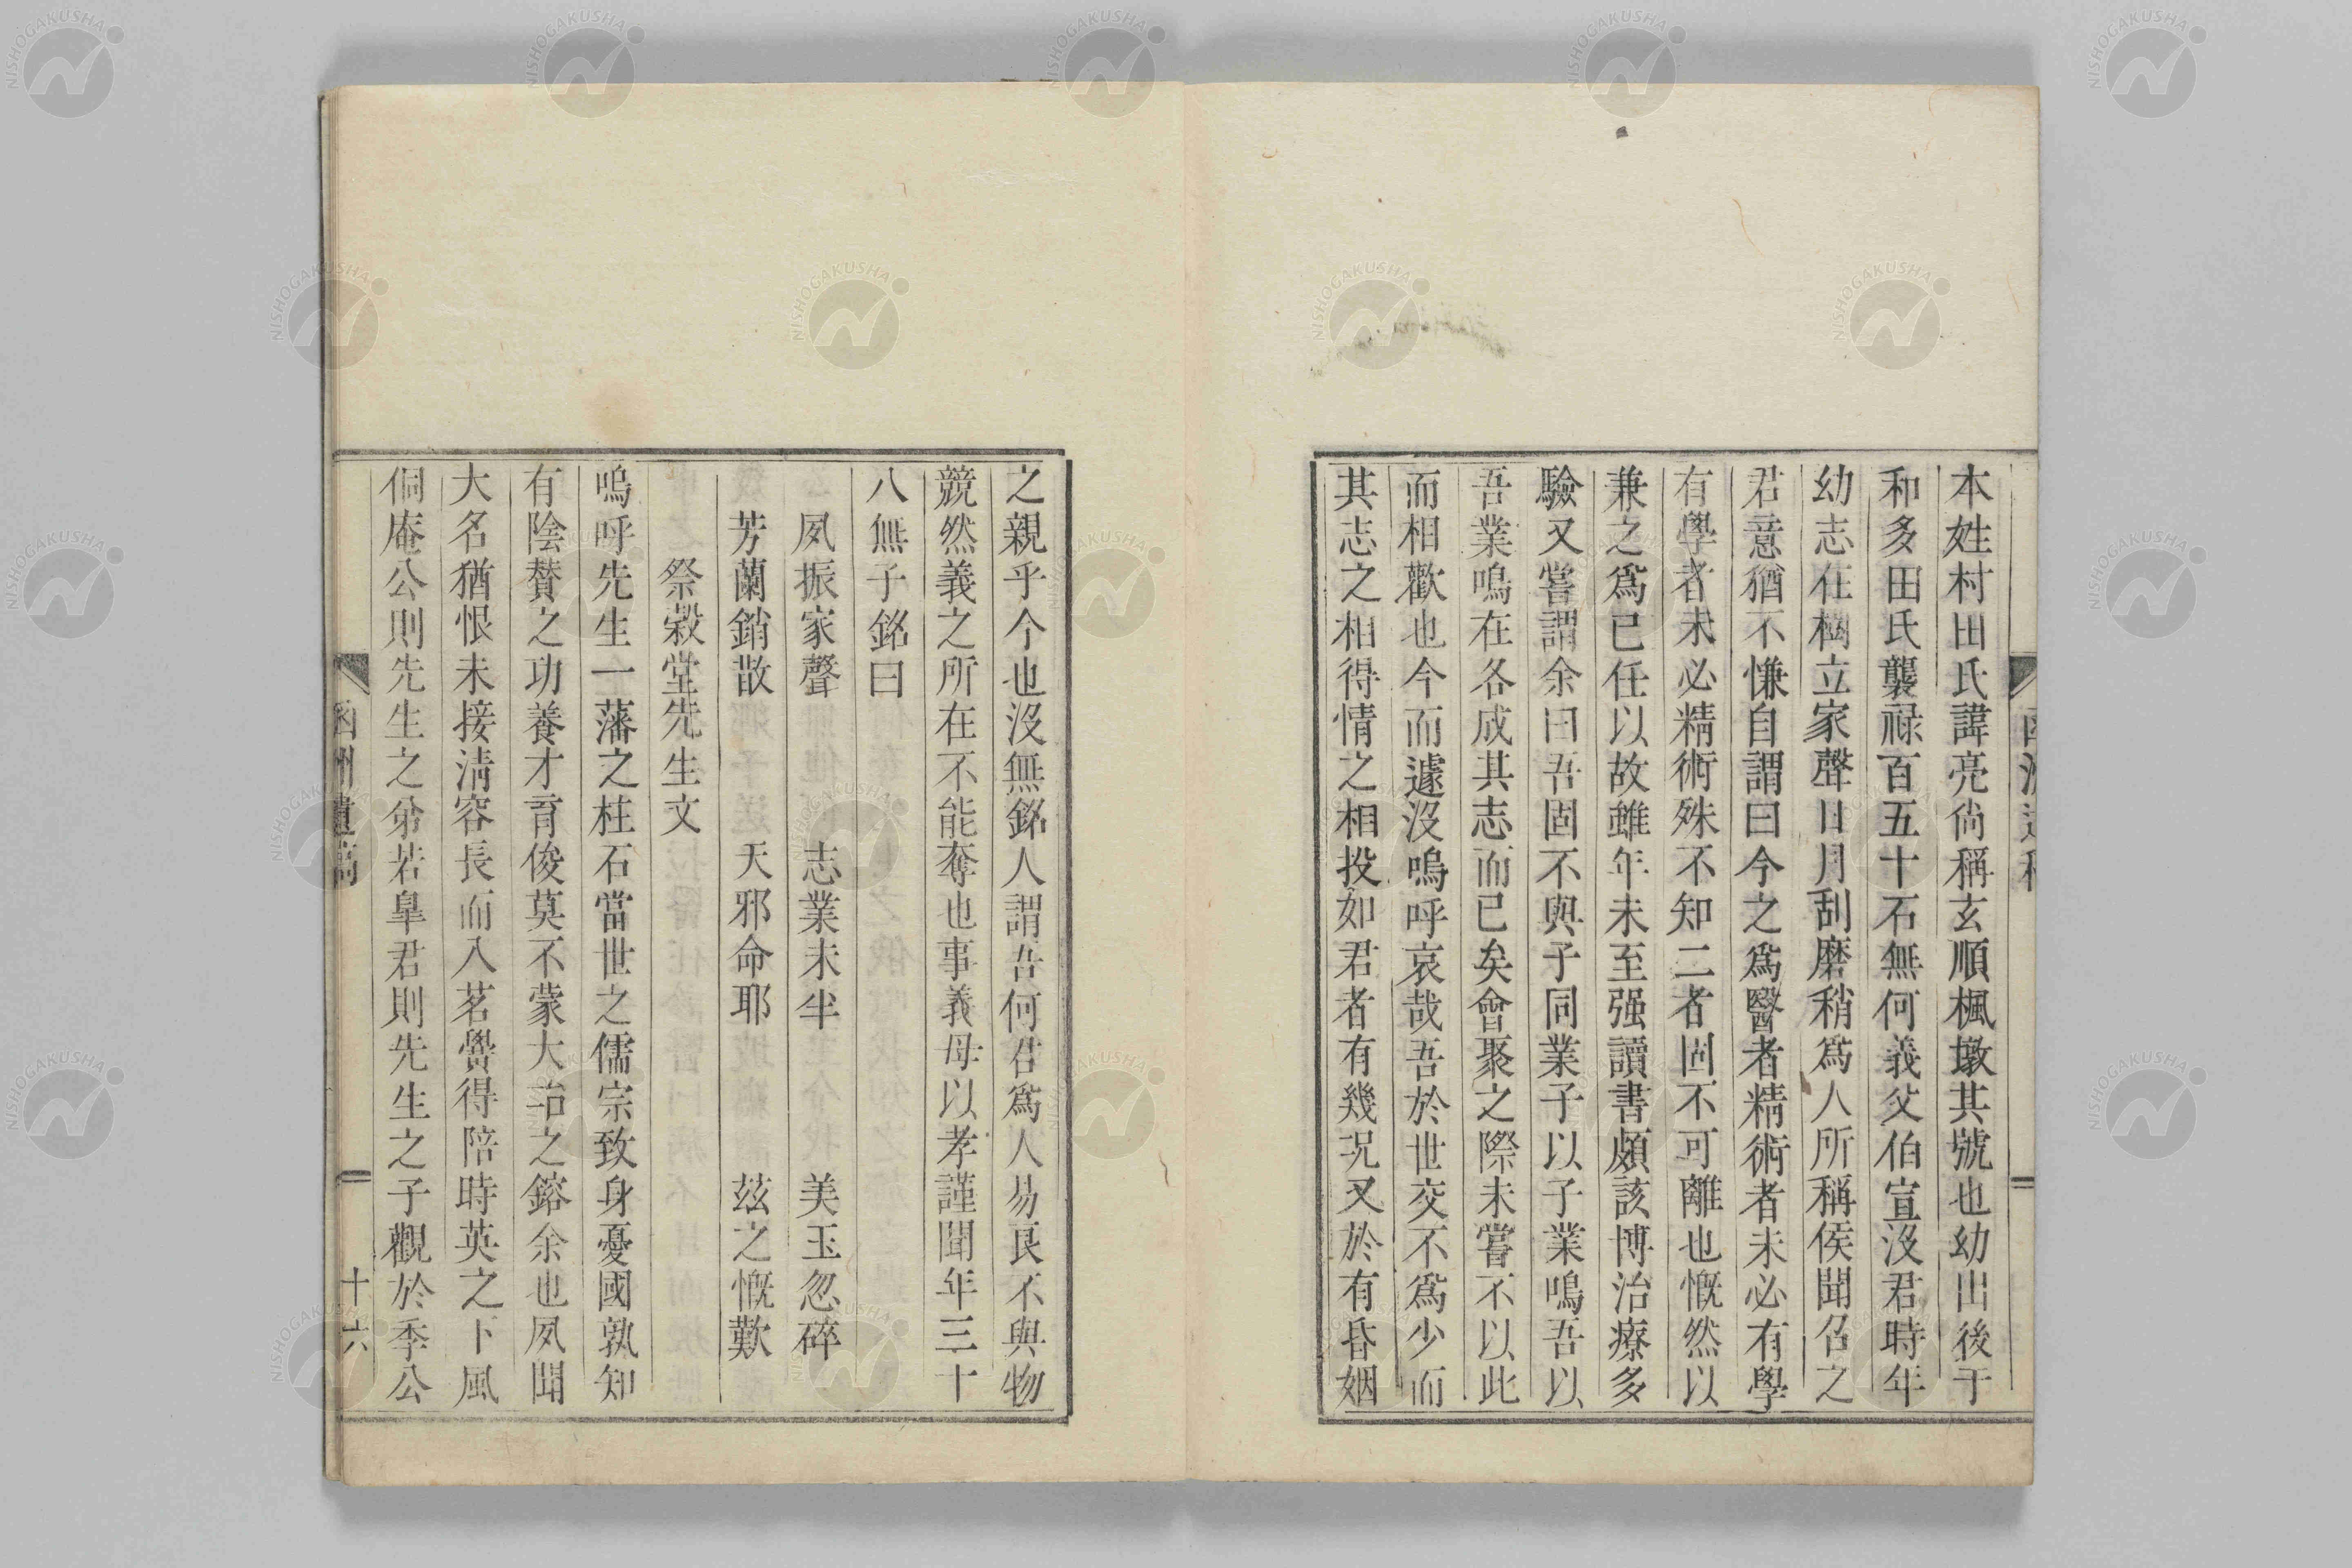 本姓村田氏諱亮尙稱玄順楓墩其號也幼出後于
和多田氏襲祿百五十石無何義父伯宣沒君時年
幼志在樹立家聲日月刮磨稍爲人所稱侯聞召之
君意猶不慊自謂曰今之爲醫者精術者未必有學
有學者未必精術殊不知二者固不可離也慨然以
兼之爲已任以故雖年未至强讀書頗該博治療多
驗又嘗謂余曰吾固不與子同業子以子業鳴吾以
吾業鳴在各成其志而已矣會聚之際未嘗不以此
而相歡也今而遽沒嗚呼哀哉吾於世交不爲少而
其志之相得情之相投如君者有幾况又於有昏姻
之親乎今也沒無銘人謂吾何君爲人易良不與物
競然義之所在不能奪也事義母以孝謹聞年三十
八無子銘曰
夙振家聲 志業未半 美玉忽碎
芳蘭銷散 天邪命耶 玆之慨歎
祭榖堂先生文
嗚呼先生一藩之柱石當世之儒宗致身憂國孰知
有陰賛之功養才育俊莫不蒙大冶之鎔余也夙聞
大名猶恨未接淸容長而入茗黌得陪時英之下風
侗庵公則先生之弟若皐君則先生之子觀於季公
函州遺稿
十六
NISHOGAKUSHA